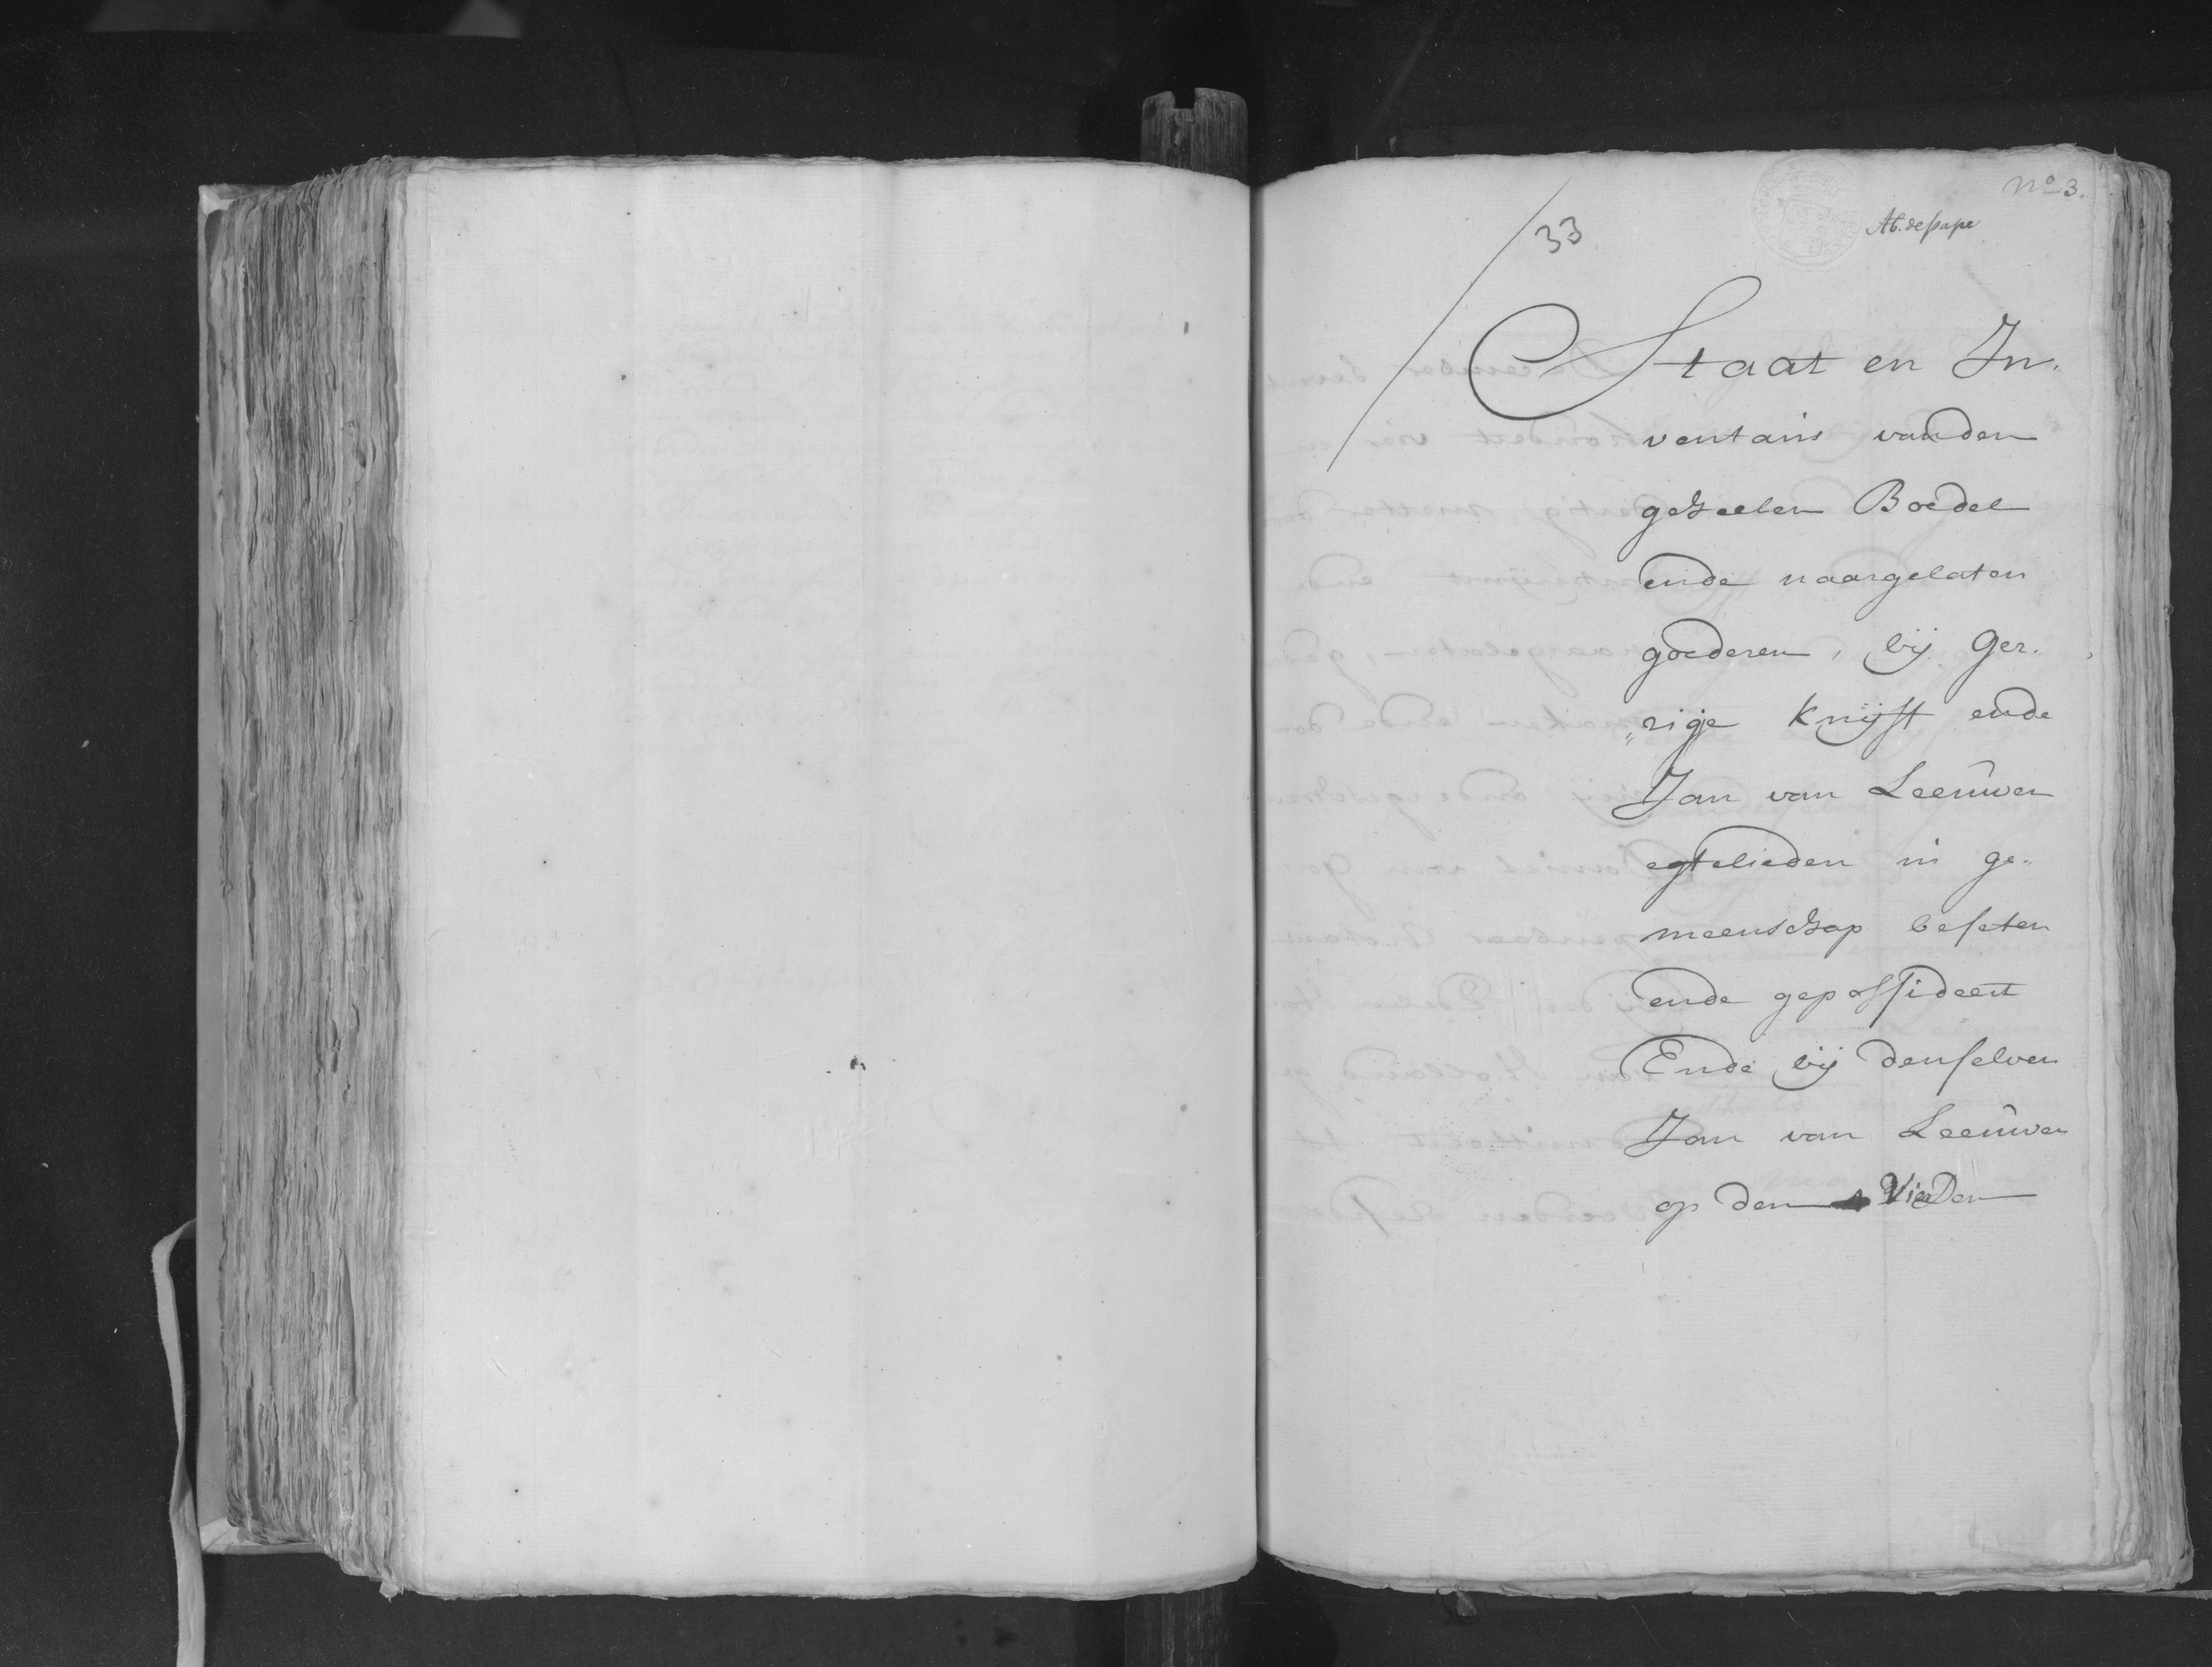 No 3.
33
Ab. de pape
Staat en In-
ventaris van den
geheelen Boedel
ende naargelaten
goederen, bij Ger-
„rigje Knijft ende
Jan van Leeuwen
egtelieden in ge-
meenschap beseten
ende gepossideert
Ende bij denselven
Jan van Leeuwen
op den Vierden